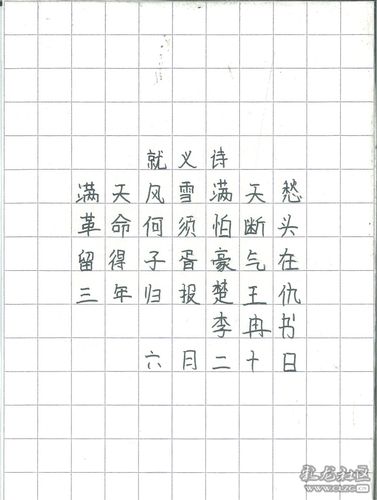 就义诗
满天风雪满天愁
革命何须怕断头
留得子胥豪气在
三年归报楚王仇
李冉书
六月二十日
龙社区
WWW.CLZG.CN